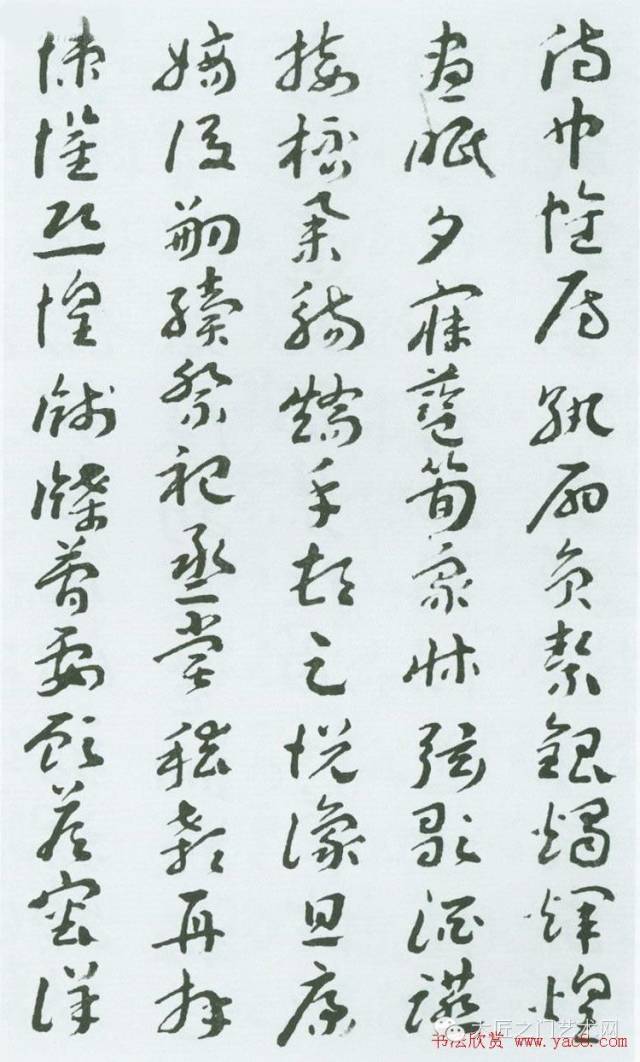 侍巾帷房紈扇員絜銀燭煒煌
晝眠夕寐藍筍象床弦歌酒讌
接杯舉觴矯手頓足悅豫且康
嫡後嗣續祭祀蒸嘗稽顙再拜
悚懼恐惶牋牒簡要顧答審詳
木匠之门艺术网
书法欣赏 www.yac8.com